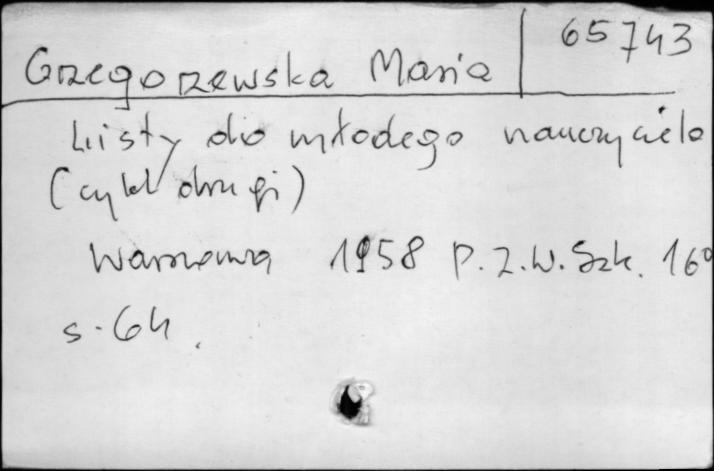 Grzegorzewska Maria 65743
Listy do młodego nauczyciela
(cykl drugi)
Warszawa 1958 P.Z.W.Szk. 16°
s. 64.